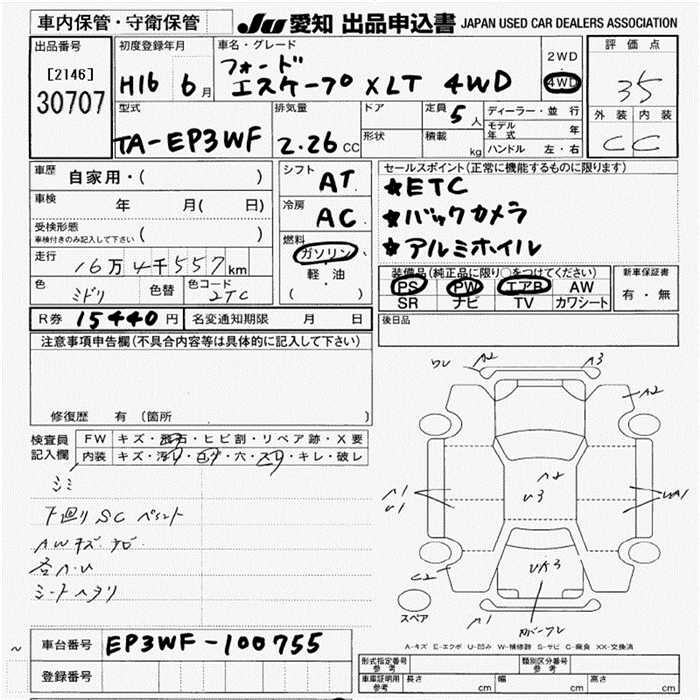 車内保管・守衛保管
JU 愛知 出品申込書 JAPAN USED CAR DEALERS ASSOCIATION
出品番号
[2146]
30707
初度登録年月
H16 6月
車名・グレード
フォード
エスケープ XLT 4WD
2WD
4WD
評価点
35
外装 内装
C C
型式
TA-EP3WF
排気量
2.26 CC
ドア
形状
定員 5人
積載 kg
ディーラー・並行
モデル年式 年
ハンドル 左・右
車歴 自家用・( )
車検 年 月( 日)
受検形態
車検付きのみ記入して下さい ( )
走行 16万4千557km
色 ミドリ 色替 色コード 2TC
シフト AT
冷房 AC
燃料
ガソリン
軽・油
( )
セールスポイント(正常に機能するものに限ります)
★ETC
★バックカメラ
★アルミホイル
装備品(純正品に限り〇をつけてください)
PS PW エアB AW
SR ナビ TV カワシート
新車保証書
有・無
R券 15440円 名変通知期限 月 日
後日品
注意事項申告欄(不具合内容等は具体的に記入して下さい)
修復歴 有(箇所 )
検査員
記入欄
FW キズ・飛石・ヒビ割・リペア跡・X要
内装 キズ・汚リ・コゲ・穴・スリ・キレ・破レ
シミ
下廻り SC ペイント
AWキズ
シートヘタリ
A2 A3
A2
A2
U3
A1
U1
UA1
UA3
C2
A1
スペア
A-キズ E-エクボ U-凹み W-補修跡 S-サビ C-腐食 XX-交換済
車台番号 EP3WF-100755
登録番号
形式指定番号 参考 類別区分番号 参考
車庫証明用 参考 長さ cm 幅 cm 高さ cm